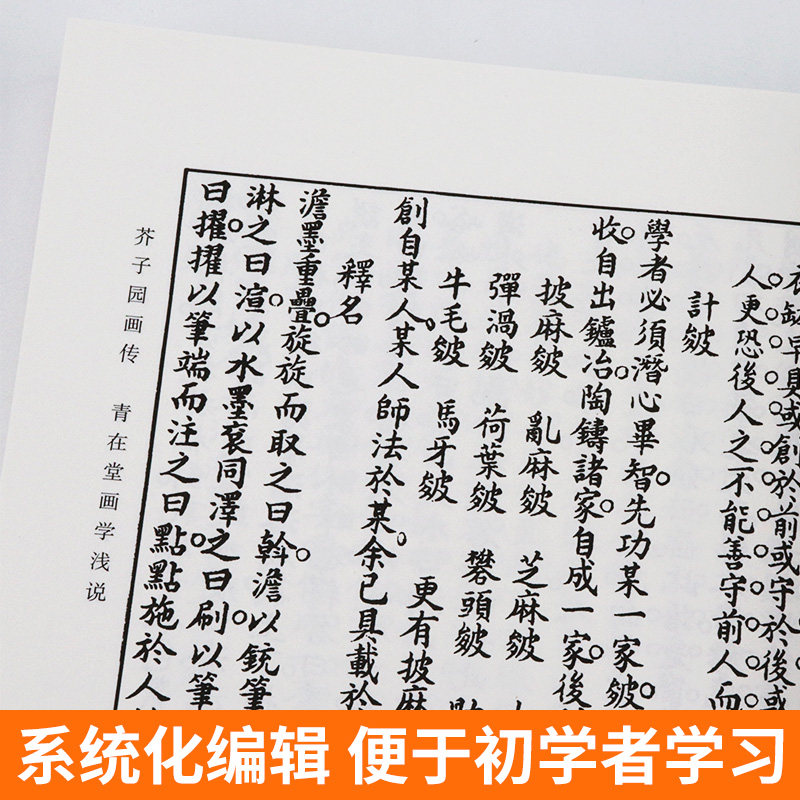 早具或創於前或守於後或
人更恐後人之不能善守前人而
計皴
學者必須潛心畢智。先功某一家皴。
收。自出鑪冶。陶鑄諸家。自成一家。後
披麻皴 亂麻皴 芝麻皴
彈渦皴 荷葉皴 礬頭皴
牛毛皴 馬牙皴 更有披麻
創自某人。某人師法於某。余已具載於
釋名
澹墨重疊。旋旋而取之曰斡。澹以銳筆
淋之。曰渲。以水墨袞同澤之。曰刷。以筆
曰擢。擢以筆端而注之曰點。點施於人
芥子园画传 青在堂画学浅说
系统化编辑 便于初学者学习